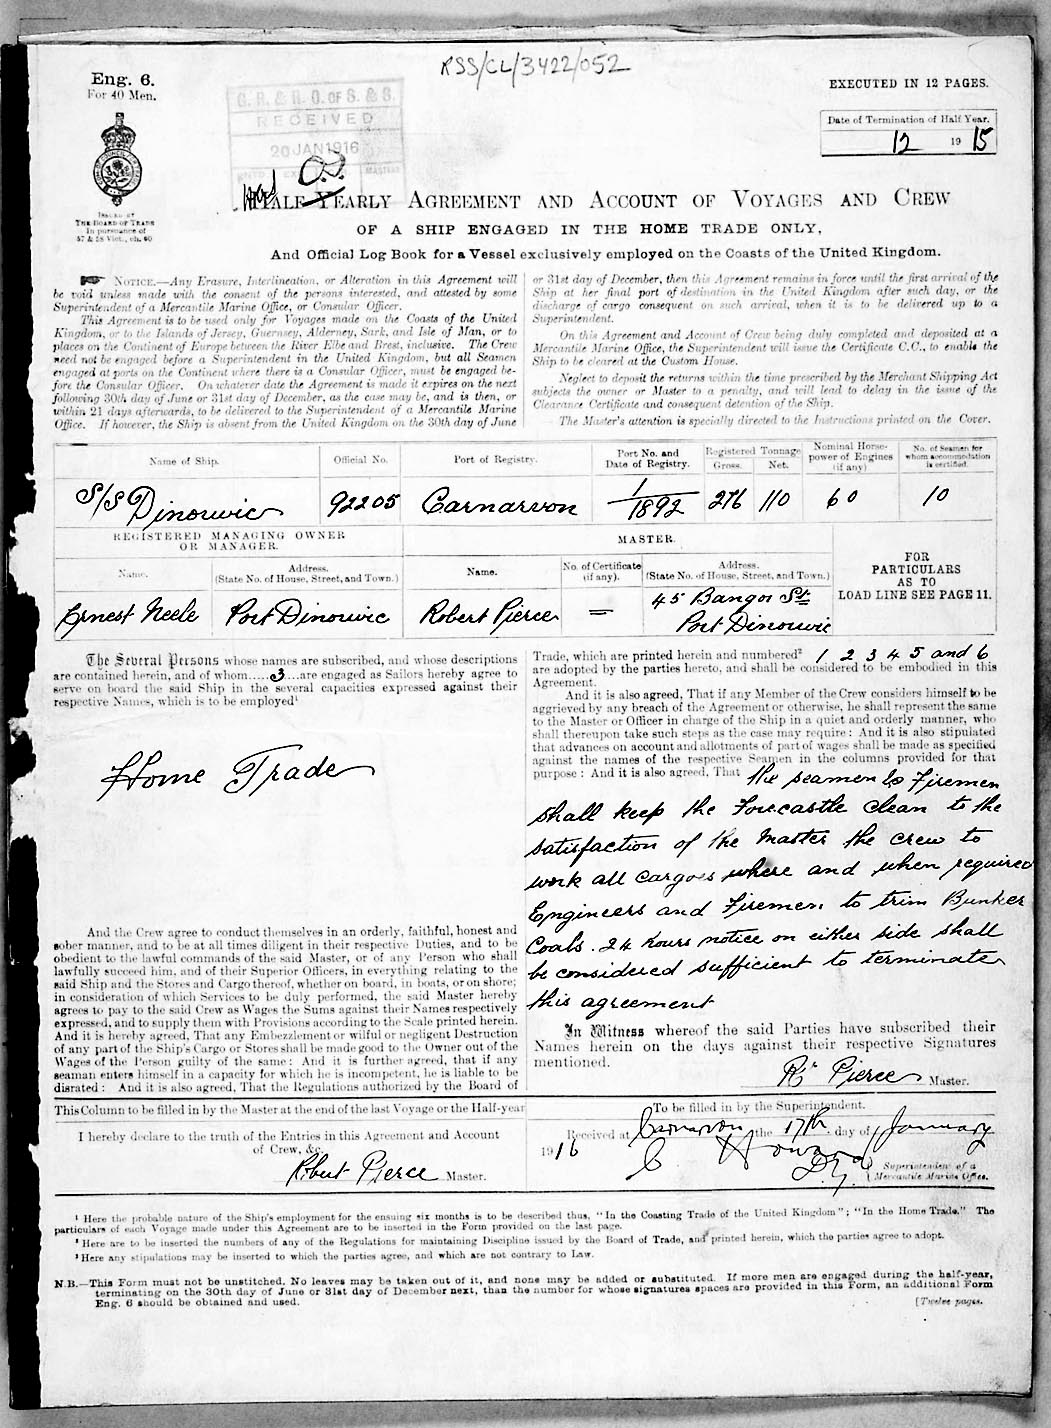 RSS/CL/3422/052
Eng. 6.
For 40 Men.
EXECUTED IN 12 PAGES.
G. R. & R. O. OF S. & S.
RECEIVED
20 JAN 1916
Date of Termination of Half Year.
12 1915
ISSUED BY
THE BOARD OF TRADE
In pursuance of
57 & 58 Vict., ch. 60
HALF-YEARLY AGREEMENT AND ACCOUNT OF VOYAGES AND CREW
OF A SHIP ENGAGED IN THE HOME TRADE ONLY,
And Official Log Book for a Vessel exclusively employed on the Coasts of the United Kingdom.
NOTICE.—Any Erasure, Interlineation, or Alteration in this Agreement will
be void unless made with the consent of the persons interested, and attested by some
Superintendent of a Mercantile Marine Office, or Consular Officer.
This Agreement is to be used only for Voyages made on the Coasts of the United
Kingdom, or to the Islands of Jersey, Guernsey, Alderney, Sark, and Isle of Man, or to
places on the Continent of Europe between the River Elbe and Brest, inclusive. The Crew
need not be engaged before a Superintendent in the United Kingdom, but all Seamen
engaged at ports on the Continent where there is a Consular Officer, must be engaged be-
fore the Consular Officer. On whatever date the Agreement is made it expires on the next
following 30th day of June or 31st day of December, as the case may be, and is then, or
within 21 days afterwards, to be delivered to the Superintendent of a Mercantile Marine
Office. If however, the Ship is absent from the United Kingdom on the 30th day of June
or 31st day of December, then this Agreement remains in force until the first arrival of the
Ship at her final port of destination in the United Kingdom after such day, or the
discharge of cargo consequent on such arrival, when it is to be delivered up to a
Superintendent.
On this Agreement and Account of Crew being duly completed and deposited at a
Mercantile Marine Office, the Superintendent will issue the Certificate C.C., to enable the
Ship to be cleared at the Custom House.
Neglect to deposit the returns within the time prescribed by the Merchant Shipping Act
subjects the owner or Master to a penalty, and will lead to delay in the issue of the
Clearance Certificate and consequent detention of the Ship.
The Master's attention is specially directed to the Instructions printed on the Cover.
Name of Ship. Official No. Port of Registry. Port No. and Date of Registry. Registered Tonnage Gross. Net. Nominal Horse-power of Engines (if any) No. of Seamen for whom accommodation is certified.
S/S Dinorwic 92205 Carnarvon 1/1892 276 110 60 10
REGISTERED MANAGING OWNER OR MANAGER. MASTER.
Name. Address. (State No. of House, Street, and Town.) Name. No. of Certificate (if any). Address. (State No. of House, Street, and Town.)
FOR
PARTICULARS
AS TO
LOAD LINE SEE PAGE 11.
Ernest Neele Port Dinorwic Robert Pierce = 45 Bangor St
Port Dinorwic
The Several Persons whose names are subscribed, and whose descriptions
are contained herein, and of whom.....3...are engaged as Sailors hereby agree to
serve on board the said Ship in the several capacities expressed against their
respective Names, which is to be employed¹
Home Trade
And the Crew agree to conduct themselves in an orderly, faithful, honest and
sober manner, and to be at all times diligent in their respective Duties, and to be
obedient to the lawful commands of the said Master, or of any Person who shall
lawfully succeed him, and of their Superior Officers, in everything relating to the
said Ship and the Stores and Cargo thereof, whether on board, in boats, or on shore;
in consideration of which Services to be duly performed, the said Master hereby
agrees to pay to the said Crew as Wages the Sums against their Names respectively
expressed, and to supply them with Provisions according to the Scale printed herein.
And it is hereby agreed, That any Embezzlement or wilful or negligent Destruction
of any part of the Ship's Cargo or Stores shall be made good to the Owner out of the
Wages of the Person guilty of the same: And it is further agreed, that if any
seaman enters himself in a capacity for which he is incompetent, he is liable to be
disrated: And it is also agreed, That the Regulations authorized by the Board of
Trade, which are printed herein and numbered² 1 2 3 4 5 and 6
are adopted by the parties hereto, and shall be considered to be embodied in this
Agreement.
And it is also agreed, That if any Member of the Crew considers himself to be
aggrieved by any breach of the Agreement or otherwise, he shall represent the same
to the Master or Officer in charge of the Ship in a quiet and orderly manner, who
shall thereupon take such steps as the case may require: And it is also stipulated
that advances on account and allotments of part of wages shall be made as specified
against the names of the respective Seamen in the columns provided for that
purpose: And it is also agreed, That the seamen & Firemen
shall keep the Forecastle clean to the
satisfaction of the Master the crew to
work all cargoes where and when required
Engineers and Firemen to trim Bunker
Coals. 24 hours notice on either side shall
be considered sufficient to terminate
this agreement
In Witness whereof the said Parties have subscribed their
Names herein on the days against their respective Signatures
mentioned.
Rt Pierce Master.
This Column to be filled in by the Master at the end of the last Voyage or the Half-year
I hereby declare to the truth of the Entries in this Agreement and Account
of Crew, &c.
Robert Pierce Master.
To be filled in by the Superintendent.
Received at Carnarvon the 17th day of January
1916
Superintendent of a
Mercantile Marine Office.
¹ Here the probable nature of the Ship's employment for the ensuing six months is to be described thus, "In the Coasting Trade of the United Kingdom"; "In the Home Trade." The
particulars of each Voyage made under this Agreement are to be inserted in the Form provided on the last page.
² Here are to be inserted the numbers of any of the Regulations for maintaining Discipline issued by the Board of Trade, and printed herein, which the parties agree to adopt.
³ Here any stipulations may be inserted to which the parties agree, and which are not contrary to Law.
N.B.—This Form must not be unstitched. No leaves may be taken out of it, and none may be added or substituted. If more men are engaged during the half-year,
terminating on the 30th day of June or 31st day of December next, than the number for whose signatures spaces are provided in this Form, an additional Form
Eng. 6 should be obtained and used.
[Twelve pages.